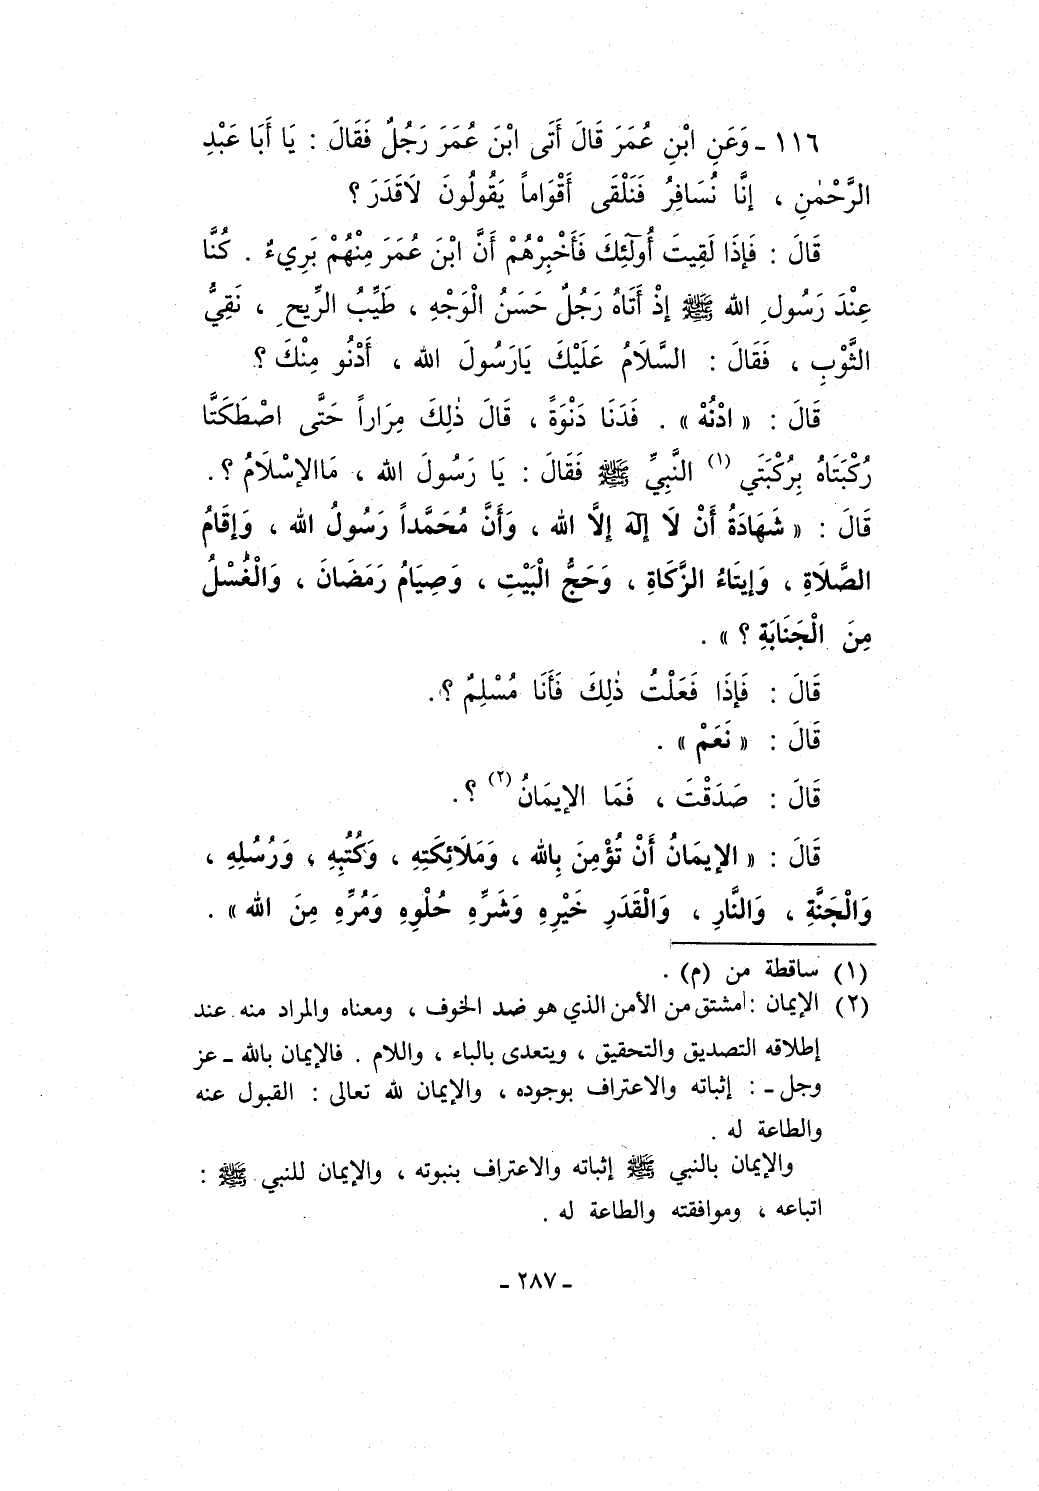 ١١٦ ـ وَعَنِ ابْنِ عُمَرَ قَالَ أَتَى ابْنَ عُمَرَ رَجُلٌ فَقَالَ : يَا أَبَا عَبْدِ
الرَّحْمٰنِ ، إنَّا نُسَافِرُ فَنَلْقَى أَقْوَاماً يَقُولُونَ لَاقَدَرَ ؟
قَالَ : فَإذَا لَقِيتَ أُولَٰئِكَ فَأَخْبِرْهُمْ أَنَّ ابْنَ عُمَرَ مِنْهُمْ بَرِيءٌ . كُنَّا
عِنْدَ رَسُولِ الله ﷺ إذْ أَتَاهُ رَجُلٌ حَسَنُ الْوَجْهِ ، طَيِّبُ الرِّيحِ ، نَقِيُّ
الثَّوْبِ ، فَقَالَ : السَّلَامُ عَلَيْكَ يَارَسُولَ الله ، أَدْنُو مِنْكَ ؟
قَالَ : « ادْنُهْ » . فَدَنَا دَنْوَةً ، قَالَ ذٰلِكَ مِرَاراً حَتَّى اصْطَكَتَّا
رُكْبَتَاهُ بِرُكْبَتَي (١) النَّبِيِّ ﷺ فَقَالَ : يَا رَسُولَ الله ، مَاالإسْلَامُ ؟ .
قَالَ : « شَهَادَةُ أَنْ لَا إلَهَ إلَّا الله ، وَأَنَّ مُحَمَّداً رَسُولُ الله ، وَإقَامُ
الصَّلَاةِ ، وَإيتَاءُ الزَّكَاةِ ، وَحَجُّ الْبَيْتِ ، وَصِيَامُ رَمَضَانَ ، وَالْغُسْلُ
مِنَ الْجَنَابَةِ ؟ » .
قَالَ : فَإذَا فَعَلْتُ ذٰلِكَ فَأَنَا مُسْلِمٌ ؟ .
قَالَ : « نَعَمْ » .
قَالَ : صَدَقْتَ ، فَمَا الإيمَانُ (٢) ؟ .
قَالَ : « الإيمَانُ أَنْ تُؤْمِنَ بِالله ، وَمَلَائِكَتِهِ ، وَكُتُبِهِ ، وَرُسُلِهِ ،
وَالْجَنَّةِ ، وَالنَّارِ ، وَالْقَدَرِ خَيْرِهِ وَشَرِّهِ حُلْوِهِ وَمُرِّهِ مِنَ الله » .
(١) ساقطة من (م) .
(٢) الإيمان : مشتق من الأمن الذي هو ضد الخوف ، ومعناه والمراد منه عند
إطلاقه التصديق والتحقيق ، ويتعدى بالباء ، واللام . فالإيمان بالله ـ عز
وجل ـ : إثباته والاعتراف بوجوده ، والإيمان لله تعالى : القبول عنه
والطاعة له .
والإيمان بالنبي ﷺ إثباته والاعتراف بنبوته ، والإيمان للنبي ﷺ :
اتباعه ، وموافقته والطاعة له .
ـ ٢٨٧ ـ